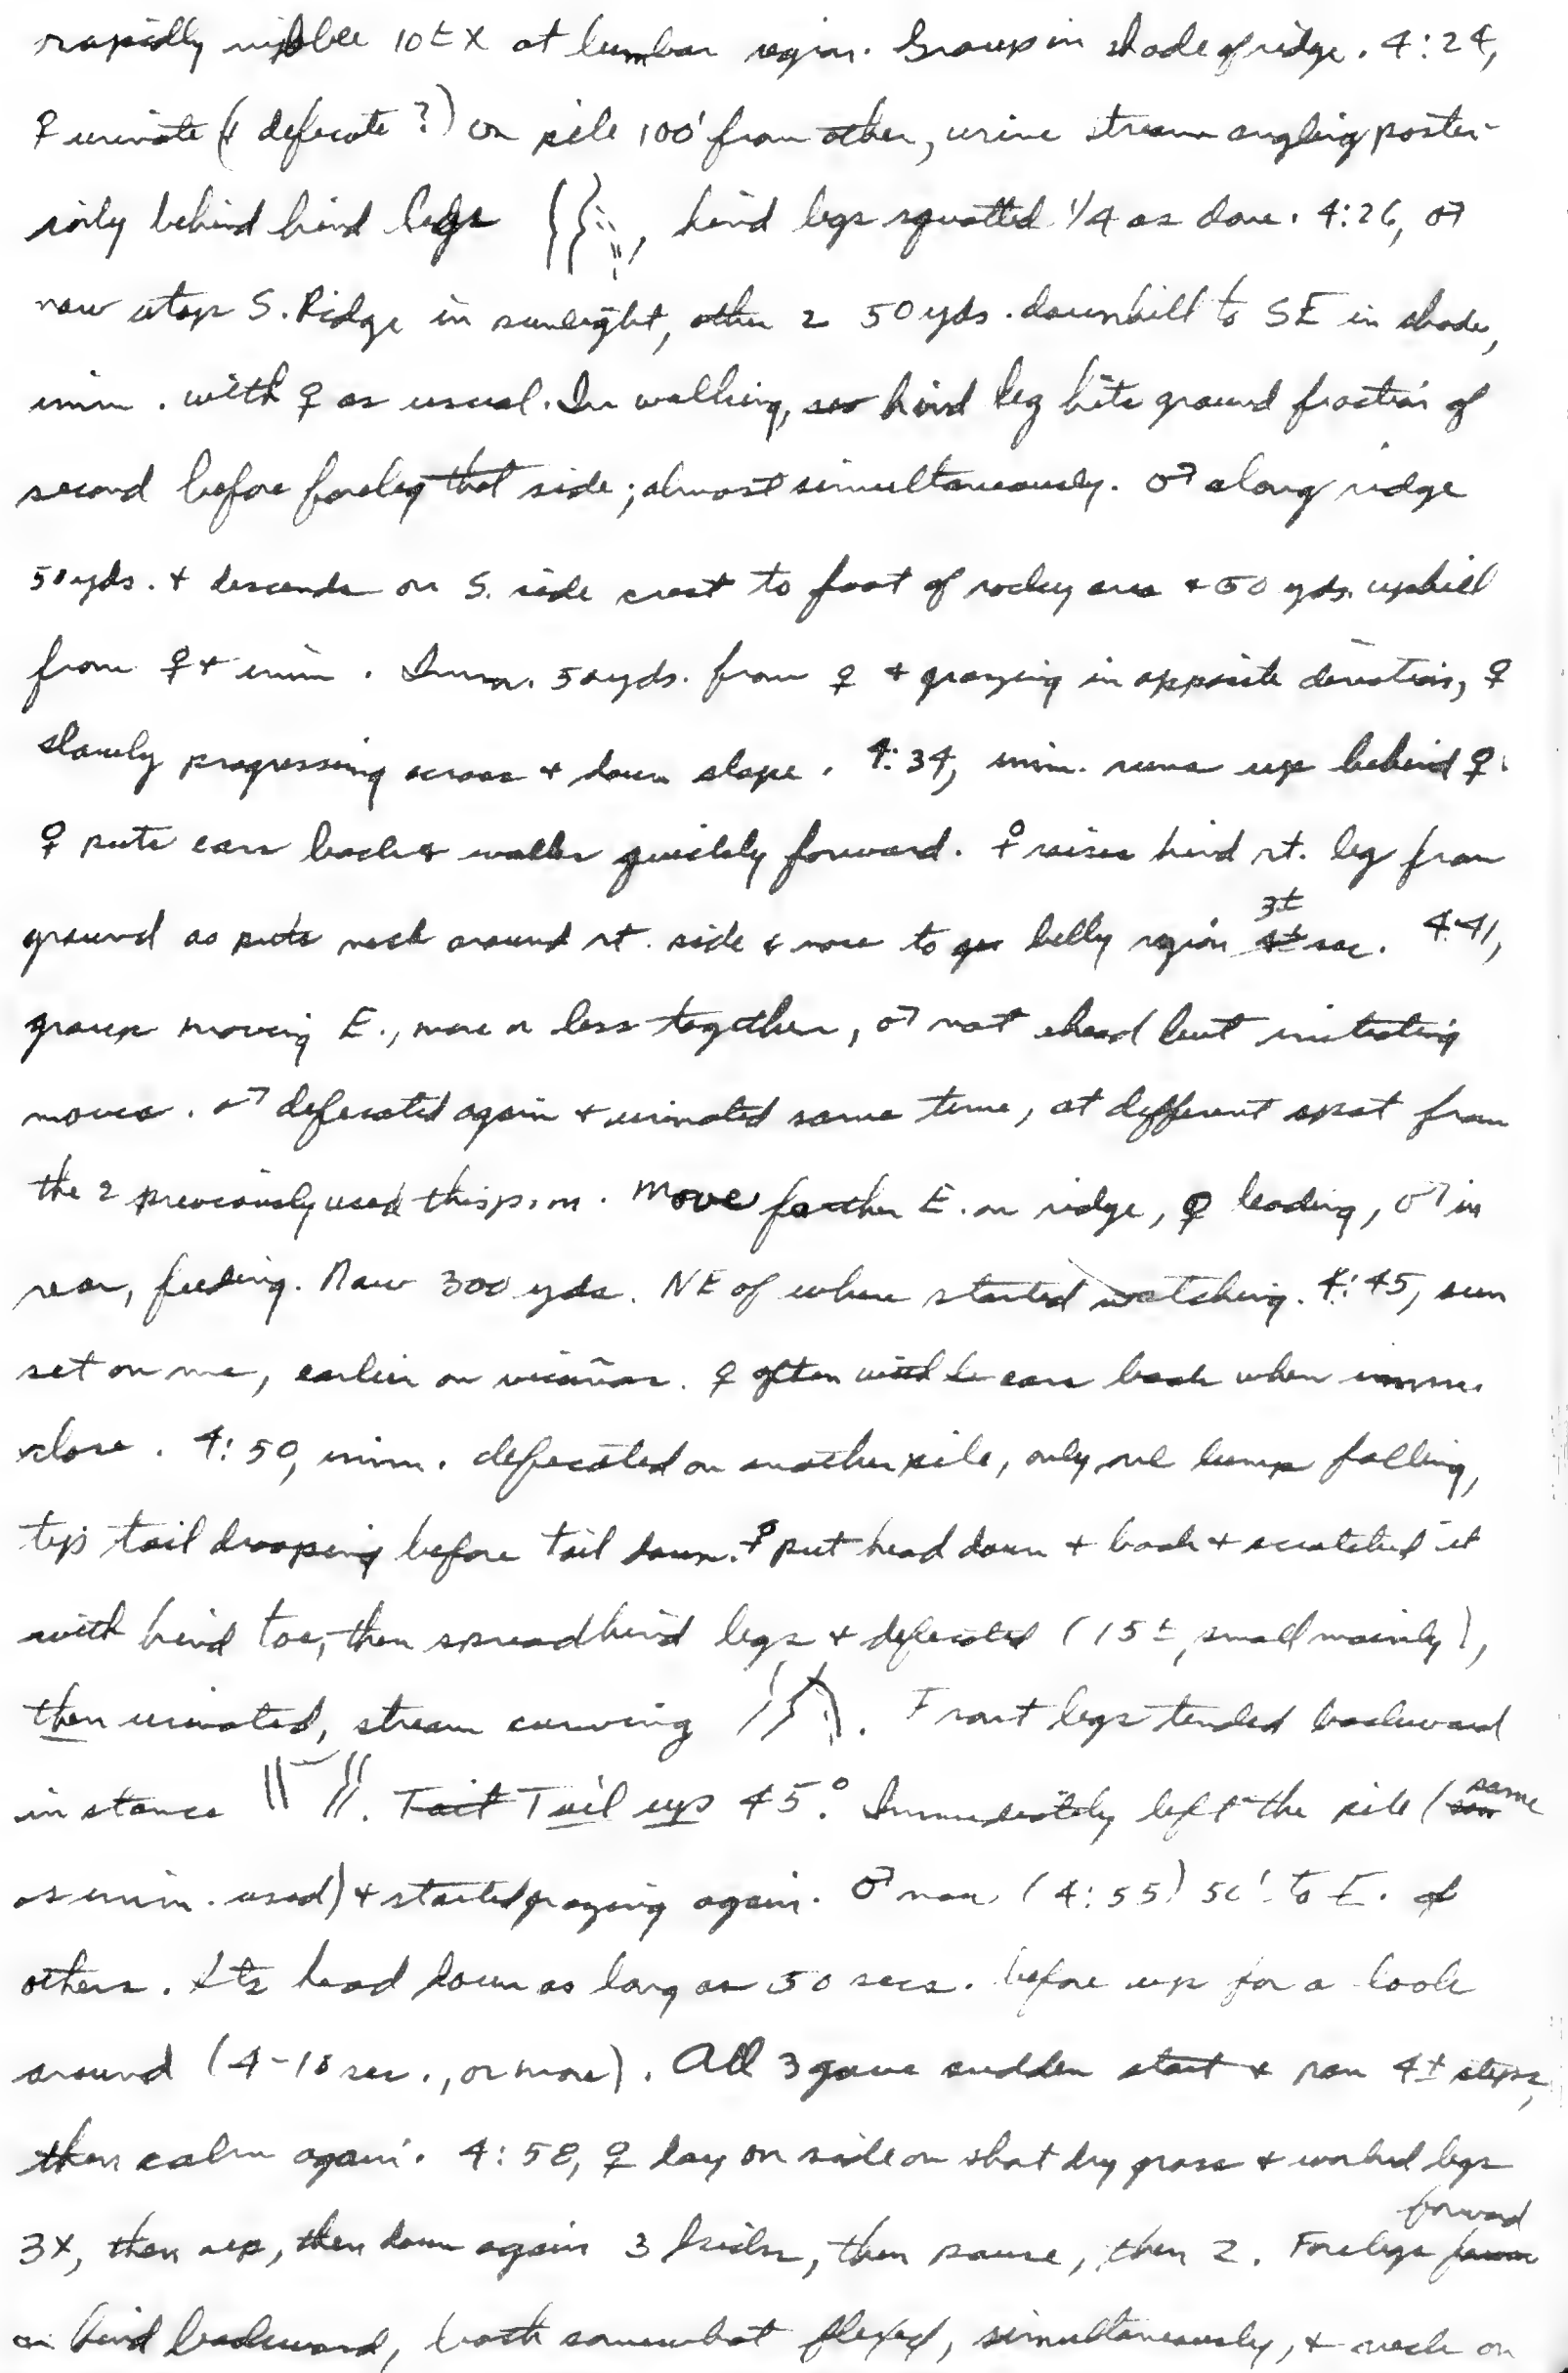 rapidly nibble 10± X at lumbar region. Group in shade of ridge. 4:24,
♀ urinate (& defecate?) on pile 100' from other, urine stream angling poster-
iorly behind hind legs , hind legs squatted 1/4 as done. 4:26, ♂
now atop S. Ridge in sunlight, other 2 50 yds. downhill to SE in shade,
imm. with ♀ as usual. In walking, hind leg hits ground fraction of
second before foreleg that side; almost simultaneously. ♂ along ridge
50 yds. + descends on S. side crest to foot of rocky area + 50 yds. uphill
from ♀ + imm. Imm. 50 yds. from ♀ + grazing in opposite direction, ♀
slowly progressing across + down slope. 4:34, imm. runs up behind ♀.
♀ puts ears back & walks quickly forward. ♀ raises hind rt. leg from
ground as puts neck around rt. side & nose to belly region 3± sec. 4:41,
group moving E., more or less together, ♂ not ahead but initiating
moves. ♂ defecated again + urinated same time, at different spot from
the 2 previously used this p.m. Move farther E. on ridge, ♀ leading, ♂ in
rear, feeding. Now 300 yds. NE of where started watching. 4:45, sun
set on me, earlier on vicuñas. ♀ often ears back when imm.
close. 4:50, imm. defecated on another pile, only one lump falling,
tip tail drooping before tail down. ♀ put head down + back + scratched it
with hind toe, then spread hind legs + defecated (15±, small mainly),
then urinated, stream curving . Front legs tended backward
in stance . Tail up 45°. Immediately left the pile (same
as imm. used) + started grazing again. ♂ now (4:55) 50' to E. of
others. Its head down as long as 50 secs. before up for a look
around (4-10 sec., or more). All 3 gave sudden start & ran 4± steps,
then calm again. 4:58, ♀ lay on side on short dry grass + worked legs
3x, then up, then down again 3 kicks, then pause, then 2. Forelegs forward
hind backward, both somewhat flexed, simultaneously, + neck on